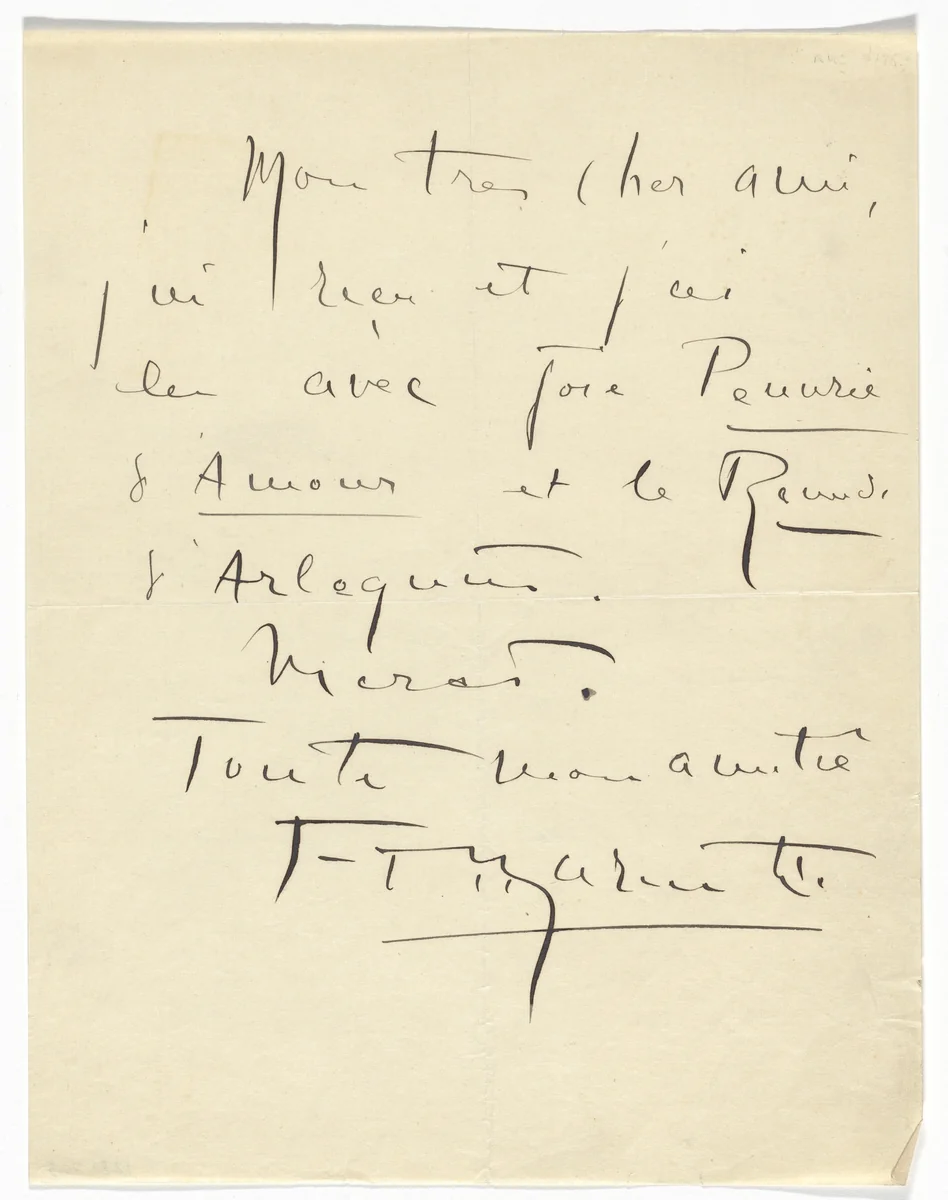 Mon tres cher ami,
j'ai reçu et j'ai
lu avec joie Penurie
d'Amour et le
d'Arlequin.
Merci.
Toute mon amitié
F. T. Marinetti